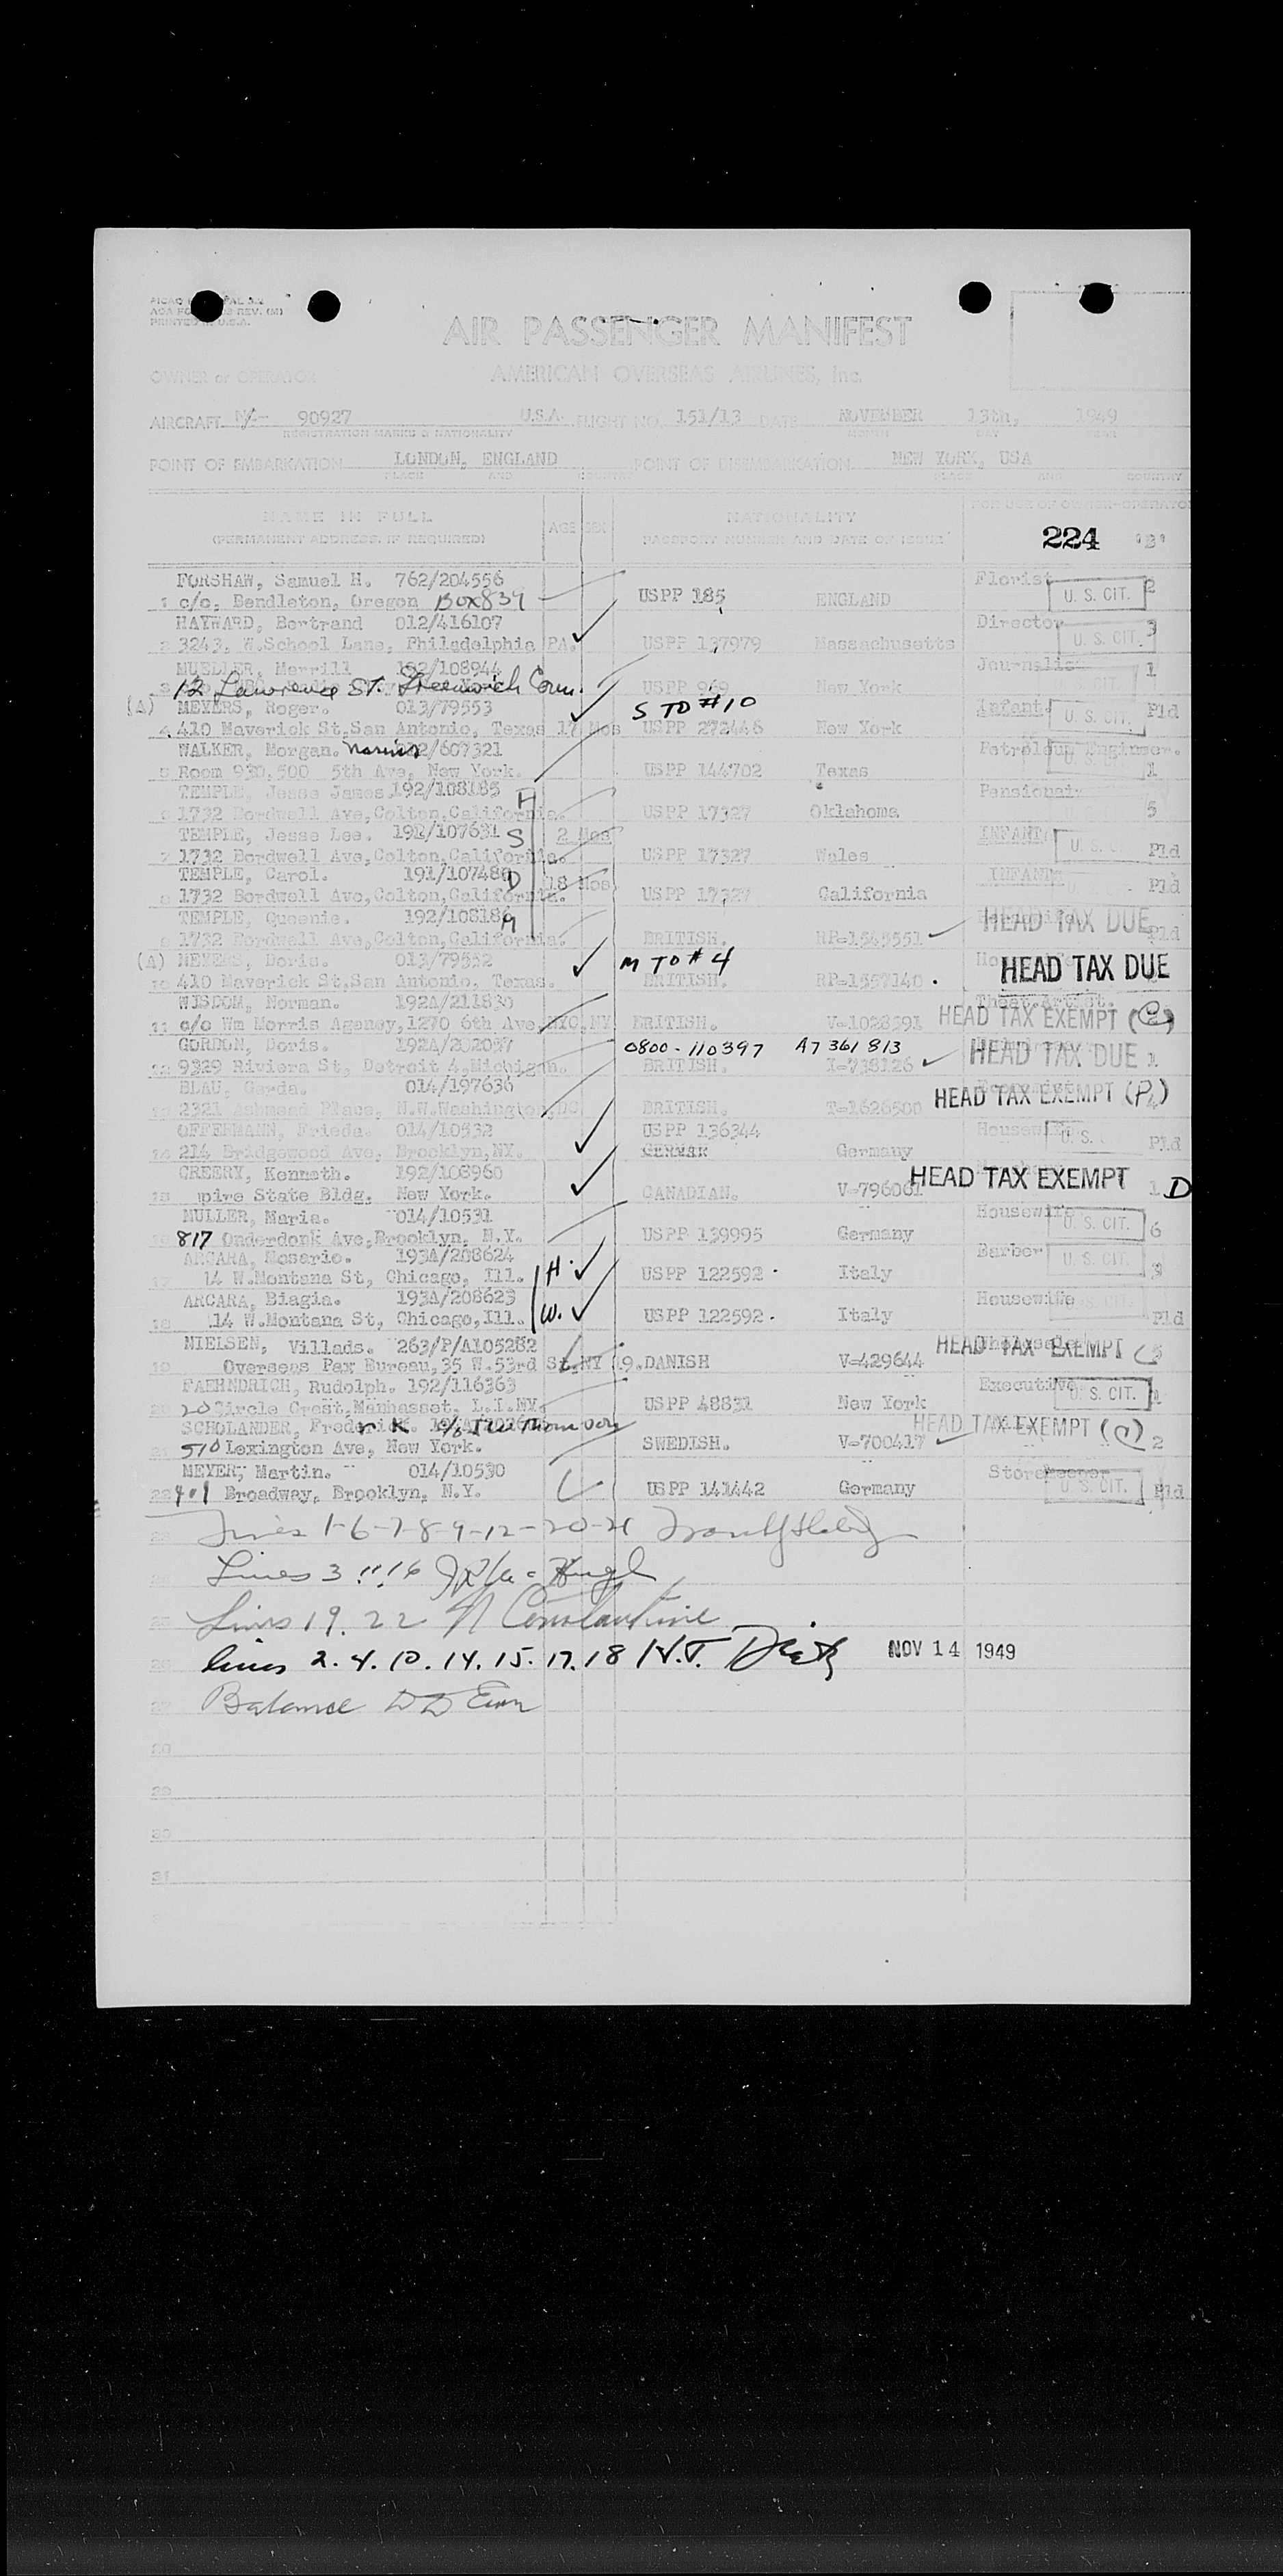 AIR PASSENGER MANIFEST
OWNER or OPERATOR AMERICAN OVERSEAS AIRLINES, Inc.
AIRCRAFT N- 90927 U.S.A. FLIGHT NO. 151/13 DATE NOVEMBER 13th, 1949
REGISTRATION MARKS & NATIONALITY MONTH DAY YEAR
POINT OF EMBARKATION LONDON, ENGLAND POINT OF DISEMBARKATION NEW YORK, USA
PLACE AND COUNTRY PLACE AND COUNTRY
NAME IN FULL AGE SEX NATIONALITY FOR USE OF OWNER-OPERATOR
(PERMANENT ADDRESS, IF REQUIRED) PASSPORT NUMBER AND DATE OF ISSUE 224 'B'
FORSHAW, Samuel H. 762/204556 Florist
1 c/o, Bendleton, Oregon Box 839 USPP 185 ENGLAND U. S. CIT. 2
HAYWARD, Bertrand 012/416107 Director
2 3243, W.School Lane, Philadelphia PA. USPP 137979 Massachusetts U. S. CIT. 3
MUELLER, Merrill 192/108944 Journalist
3 12 Lawrence ST. Greenwich Conn. USPP 969 New York CIT. 1
(A) MEYERS, Roger. 013/79553 S TO #10 Infant
4 410 Maverick St, San Antonio, Texas 17 Mos USPP 272446 New York U. S. CIT. Pld
WALKER, Morgan. Petroleum Engineer.
5 Room 930, 500 5th Ave, New York. USPP 144702 Texas U. S. 1
TEMPLE, Jesse James 192/108185 H
6 1732 Bordwell Ave, Colton, California. USPP 17327 Oklahoma 5
TEMPLE, Jesse Lee. 192/107631 S 2 Mos INFANT
7 1732 Bordwell Ave, Colton, California. USPP 17327 Wales U. S. Pld
TEMPLE, Carol. D 18 Mos INFANT
8 1732 Bordwell Ave, Colton, California. USPP 17327 California Pld
TEMPLE, Queenie. 192/108186 HEAD TAX DUE
9 1732 Bordwell Ave, Colton, California. BRITISH. RP-1545551 Pld
(A) MEYERS, Doris. 013/79552 M TO #4 HEAD TAX DUE
10 410 Maverick St, San Antonio, Texas. BRITISH. RP-1557140
WISDOM, Norman. 192A/211830 Theat.Artist.
11 c/o Wm Morris Agency, 1270 6th Ave, NYC, NY BRITISH. V-1028391 HEAD TAX EXEMPT
GORDON, Doris. 192A/202037 0800-110397 A7 361 813 HEAD TAX DUE 1
12 9329 Riviera St, Detroit 4, Michigan. BRITISH. I-738126
BLAU, Gerda. 014/197636 HEAD TAX EXEMPT (P)
13 2321 Place, N.W. Washington, DC BRITISH. T-1626500
OFFERMANN, Frieda. 014/10532 USPP 136344 Housewife
14 214 Bridgewood Ave, Brooklyn, NY. GERMAN Germany U. S. Pld
CREERY, Kenneth. 192/108960 HEAD TAX EXEMPT
15 mpire State Bldg. New York. CANADIAN. V-796061 1 D
MULLER, Marie. 014/10531 Housewife
16 817 Onderdonk Ave, Brooklyn, N.Y. USPP 139995 Germany U. S. CIT. 6
ARCARA, Rosario. 193A/208624 H. Barber
17 14 W.Montana St, Chicago, Ill. USPP 122592 Italy U. S. CIT. 3
ARCARA, Biagia. 193A/208623 W. Housewife
18 14 W.Montana St, Chicago, Ill. USPP 122592 Italy U. S. CIT. Pld
NIELSEN, Villads. 263/P/A105282 HEAD TAX EXEMPT
19 Overseas Pax Bureau, 35 W.53rd St, NY 19. DANISH V-429644
FAEHNDRICH, Rudolph. 192/116363 Executive
20 20 Circle Crest, Manhasset. L.I.NY. USPP 48831 New York U. S. CIT. 1
SCHOLANDER, Frederick. HEAD TAX EXEMPT
21 570 Lexington Ave, New York. SWEDISH. V-700417 2
MEYER, Martin. 014/10530 Storekeeper
22 401 Broadway, Brooklyn, N.Y. USPP 141442 Germany U. S. CIT. Pld
23 Lines 1-6-7-8-9-12-20-21
24 Lines 3
25 Lines 19. 22 Constantine
26 lines 2. 4. 10. 14. 15. 17. 18 NOV 14 1949
27 Balance
28
29
30
31